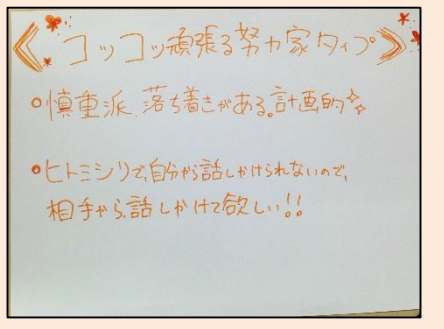 《コツコツ頑張る努力家タイプ》
慎重派、落ち着きがある。計画的
ヒトミシリで、自分から話しかけられないので、
相手から、話しかけて欲しい!!